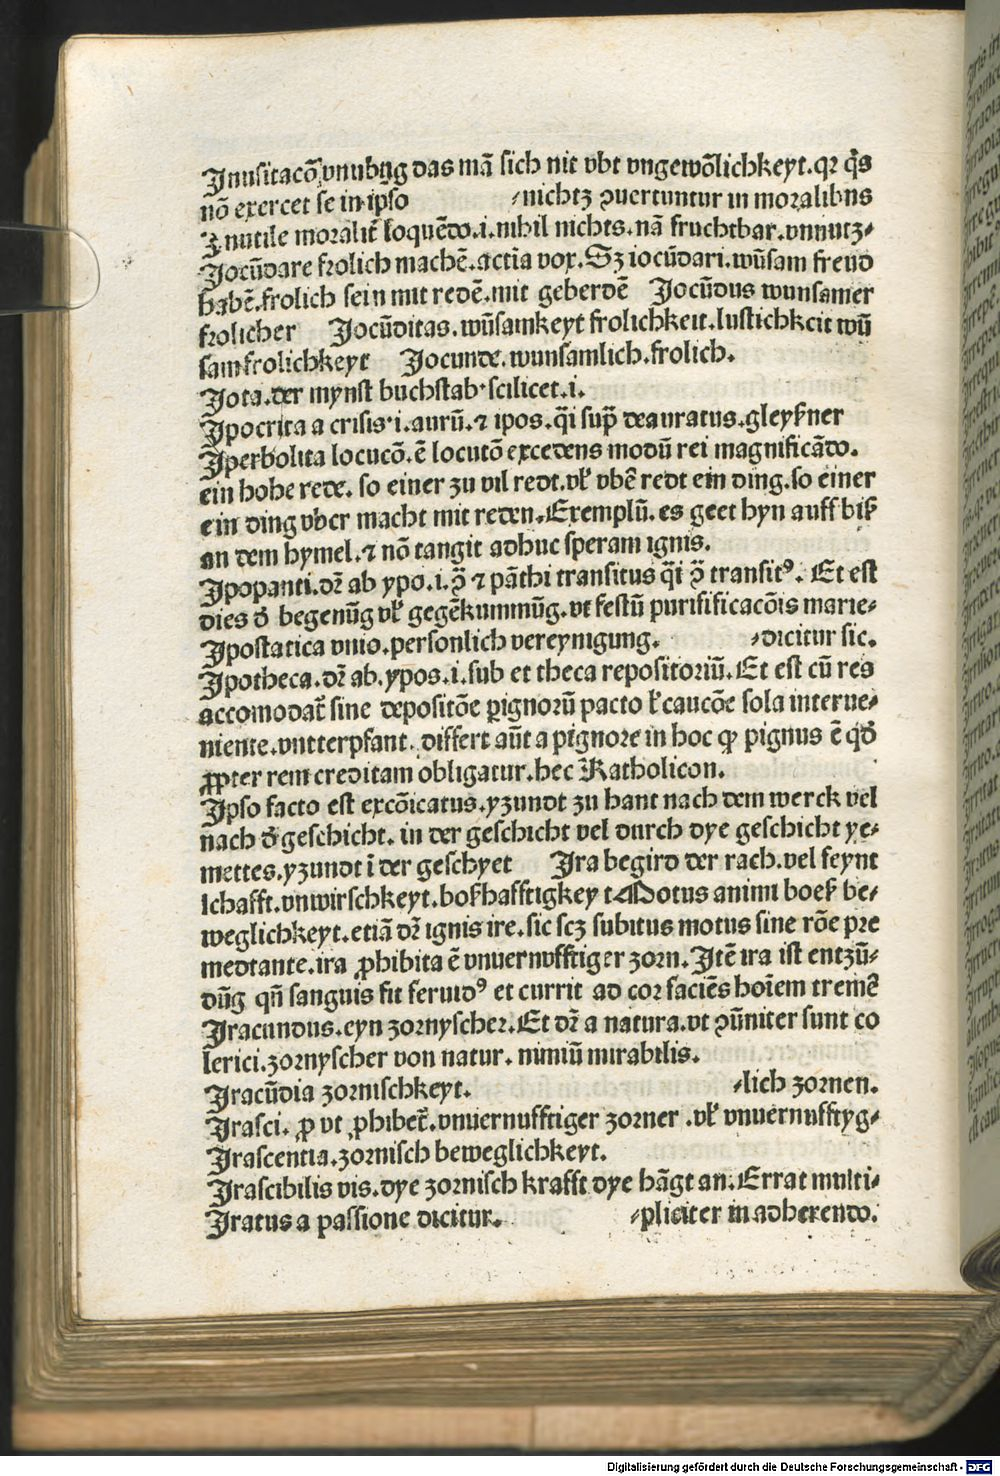 Inusitacõ, vnubũg das mã sich nit vbt vngewõlichkeyt. qꝛ q̃s
nõ exercet se in ipso ⸗nichtz ꝯuertuntur in moꝛalibns
Inutile moꝛalit̃ loquẽdo .i. nihil nichts. nã fruchtbar. vnnutz⸗
Jocũdare frolich machẽ. actĩa vox. Sz iocũdari. wũsam freud
habẽ. frolich sein mit redẽ. mit geberdẽ Jocũdus wunsamer
frolicher Jocũditas. wũsamkeyt frolichkeit. lustichkcit wũ
sam frolichkeyt Jocunde. wunsamlich. frolich.
Jota. der mynst buchstab scilicet .i.
Ipocrita a crisis .i. aurũ. ⁊ ipos. q̃i sup̃ deauratus. gleyßner
Iperbolita locucõ. ẽ locutõ excedens modũ rei magnificãdo.
ein hohe rede. so einer zu vil redt. vľ vbẽ redt ein ding. so einer
ein ding vbcr macht mit reden. Exemplũ. es geet hyn auff biß
an dem hymel. ⁊ nõ tangit adhuc speram ignis.
Ipopanti. dꝛ̃ ab ypo .i. p̃ ⁊ pãthi transitus q̃i p̃ transitꝰ. Et est
dies d̓ begenũg vľ gegẽkummũg. vt festũ purifificacõis marie⸗
Ipostatica vnio. personlich vereynigung. ⸗dicitur sic.
Ipotheca. dꝛ̃ ab. ypos .i. sub et theca repositoriũ. Et est cũ res
accomodat̃ sine depositõe pignoꝛũ pacto ľ caucõe sola interue⸗
niente. vntterpfant. differt aũt a pignoꝛe in hoc ꝙ pignus ẽ qd̓
ꝓpter rem creditam obligatur. hec Katholicon.
Ipso facto est excõicatus. yzundt zu hant nach dem werck vel
nach d̓ geschicht. in der geschicht vel durch dye geschicht ye⸗
mettes. yzundt ĩ der geschyet Ira begird der rach. vel feynt
schafft. vnwirschkeyt. boßhafftigkey t Motus animi boeß be⸗
weglichkeyt. etiã dꝛ̃ ignis ire. sic scz subitus motus sine rõe pꝛe
medtante. ira ꝓhibita ẽ vnuernvfftiger zorn. Itẽ ira ist entzũ⸗
dũg qñ sanguis fit feruidꝰ et currit ad coꝛ faciẽs hoĩem tremẽ
Iracundus. eyn zoꝛnyscheꝛ. Et dꝛ̃ a natura. vt ꝯũniter sunt co
lerici. zoꝛnyscher von natur. nimiũ mirabilis.
Iracũdia zoꝛnischkeyt. ⸗lich zoꝛnen.
Irasci. ꝓ vt ꝓhibet̃. vnuernufftiger zoꝛner. vľ vnuernufftyg⸗
Irascentia. zoꝛnisch beweglichkeyt.
Irascibilis vis. dye zoꝛnisch krafft dye hãgt an. Errat multi⸗
Iratus a passione dicitur. ⸗pliciter in adherendo.
Digitalisierung gefördert durch die Deutsche Forschungsgemeinschaft - DFG